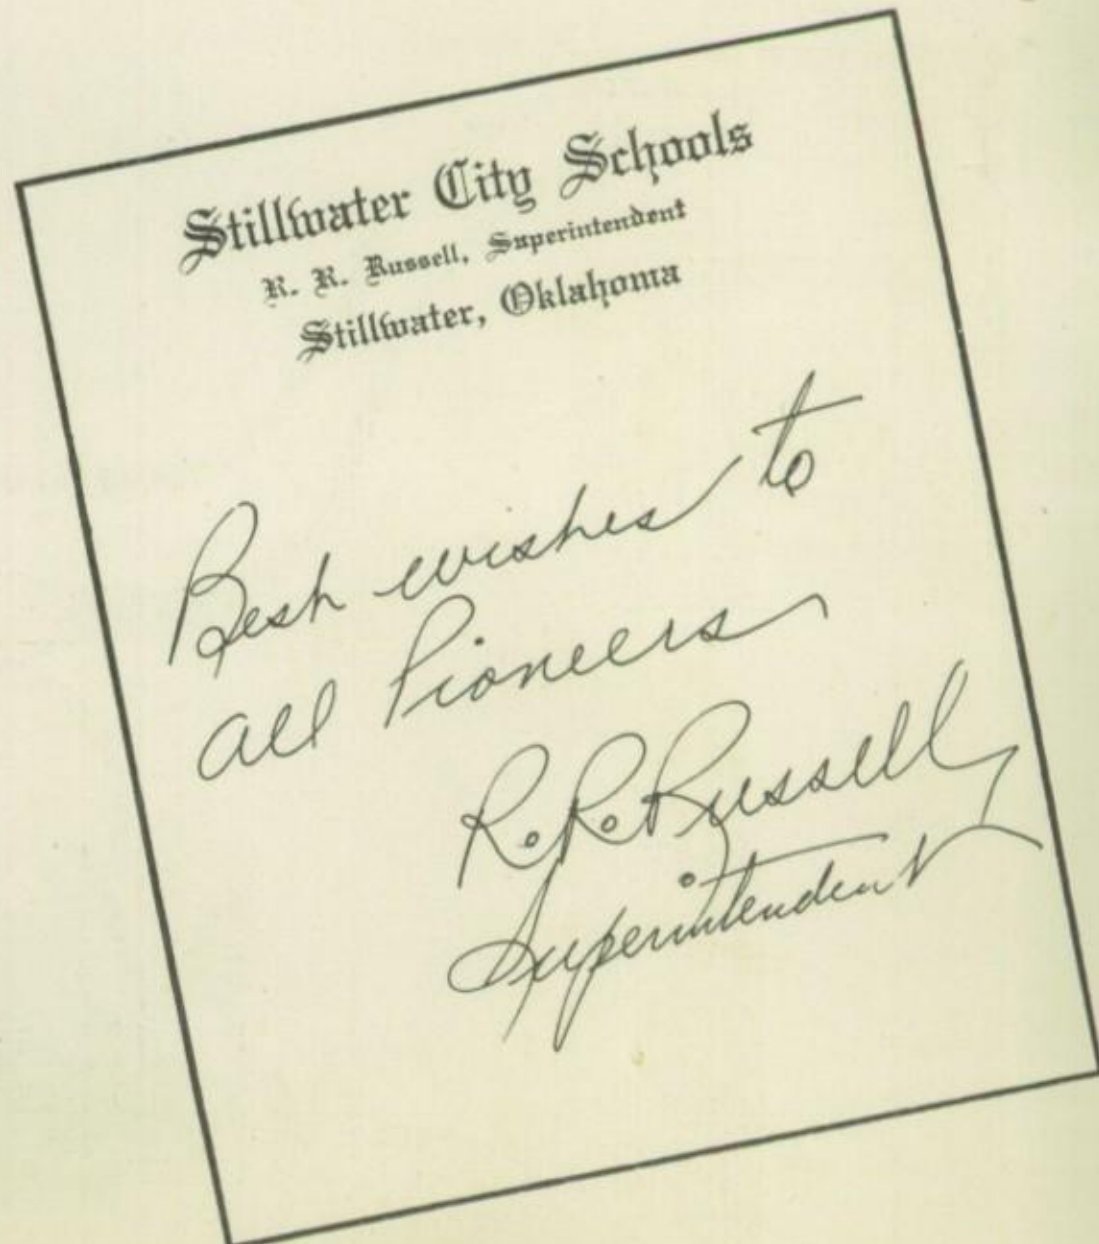 Stillwater City Schools
R. R. Russell, Superintendent
Stillwater, Oklahoma
Best wishes to
all Pioneers
R. R. Russell
Superintendent